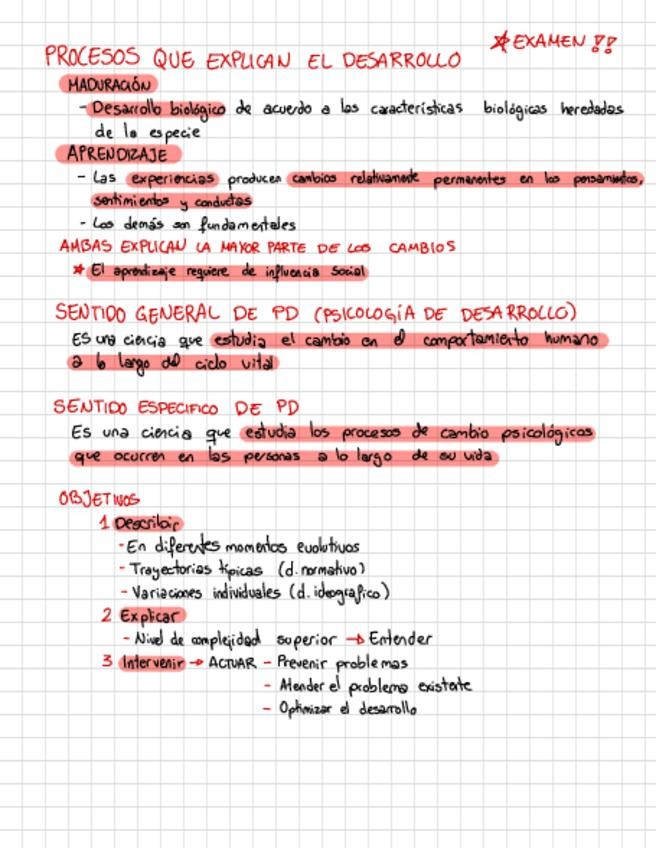 ☆ EXAMEN !!
PROCESOS QUE EXPLICAN EL DESARROLLO
MADURACIÓN
- Desarrollo biológico de acuerdo a las características biológicas heredadas
de la especie
APRENDIZAJE
- Las experiencias producen cambios relativamente permanentes en los pensamientos,
sentimientos y conductas
- Los demás son fundamentales
AMBAS EXPLICAN LA MAYOR PARTE DE LOS CAMBIOS
* El aprendizaje requiere de influencia social
SENTIDO GENERAL DE PD (PSICOLOGÍA DE DESARROLLO)
ES una ciencia que estudia el cambio en el comportamiento humano
a lo largo del ciclo vital
SENTIDO ESPECIFICO DE PD
Es una ciencia que estudia los procesos de cambio psicológicos
que ocurren en las personas a lo largo de su vida
OBJETIVOS
1 Describir
- En diferentes momentos evolutivos
- Trayectorias típicas (d. normativo)
- Variaciones individuales (d. ideografico)
2 Explicar
- Nivel de complejidad superior → Entender
3 Intervenir → ACTUAR - Prevenir problemas
- Atender el problema existente
- Optimizar el desarrollo